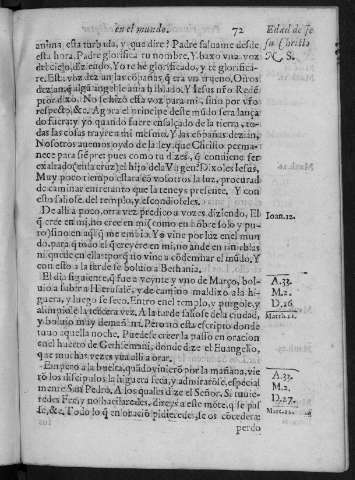 en el mundo. 72 Edad de Je
su Christo
N. S.
anima esta turbada, y que dire? Padre saluame desde
esta hora. Padre glorifica tu nombre. Y baxo vna voz
del cielo, diziendo, Yo te hé glorificado, y te glorifica-
re. Esta voz
dezian, q algũ angel le auia hablado. Y Iesus nr̃o Redẽ
ptor dixo. No se hizo esta voz para mi, sino por vr̃o
respecto, &c. Agora el principe deste mũdo sera lança
do fuera: y yo quando fuere ensalçado de la tierra, to-
das las cosas trayre a mi mismo. Y las cõpañas dezian,
Nosotros auemos oydo de la ley, que Christo perma-
nece para siẽpre: pues como tu dizes, q̃ conuiene ser
exaltado (en la cruz) el hijo de la Virgen? Dixoles Iesus,
Muy poco tiempo estara cõ vosotros la luz, procurad
de caminar entretanto que la teneys presente. Y con
esto saliose del templo, y escondioseles.
De alli a poco, otra vez predico a vozes diziendo, El
q̃ cree en mi, no cree en mi (como en hõbre solo y pu-
ro) sino en aq̃l q̃ me embia. Y o vine por luz en el mun
do, para q̃ todo el q̃ creyere en mi, no ande en tinieblas
ni quede en ellas: porq̃ no vine a cõdemnar el mũdo. Y
con esto a la tarde se boluio a Bethania.
Ioan. 12.
El dia siguiente, q̃ fue a veynte y vno de Março, bol-
uio a subir a Hierusalẽ, y de camino maldixo a la hi-
guera, y luego se seco. Entro en el templo, y purgole, y
alimpiole la tercera vez. A la tarde saliose de la ciudad,
y boluio muy de mañana. Pero no esta escripto donde
tuuo aquella noche. Puedese creer la passo en oracion
en el huerto de Gethsemani, donde dize el Euangelio,
que muchas vezes yua alli a orar.
A. 33.
M. 2.
D. 26.
Marc. 11.
Empero a la buelta, quãdo viniero por la mañana, vie
rõ los discipulos la higuera seca, y admirarõse, especial
mente San Pedro. A los quales dize el Señor. Si tuuie-
redes Fee, y no vacilaredes, dizeys a este mõte, q̃ se pas
se, &c. Todo lo q̃ en oraciõ pidieredes, se os cõcedera:
A. 33.
M. 2.
D. 27.
Marc. 11.
perdo